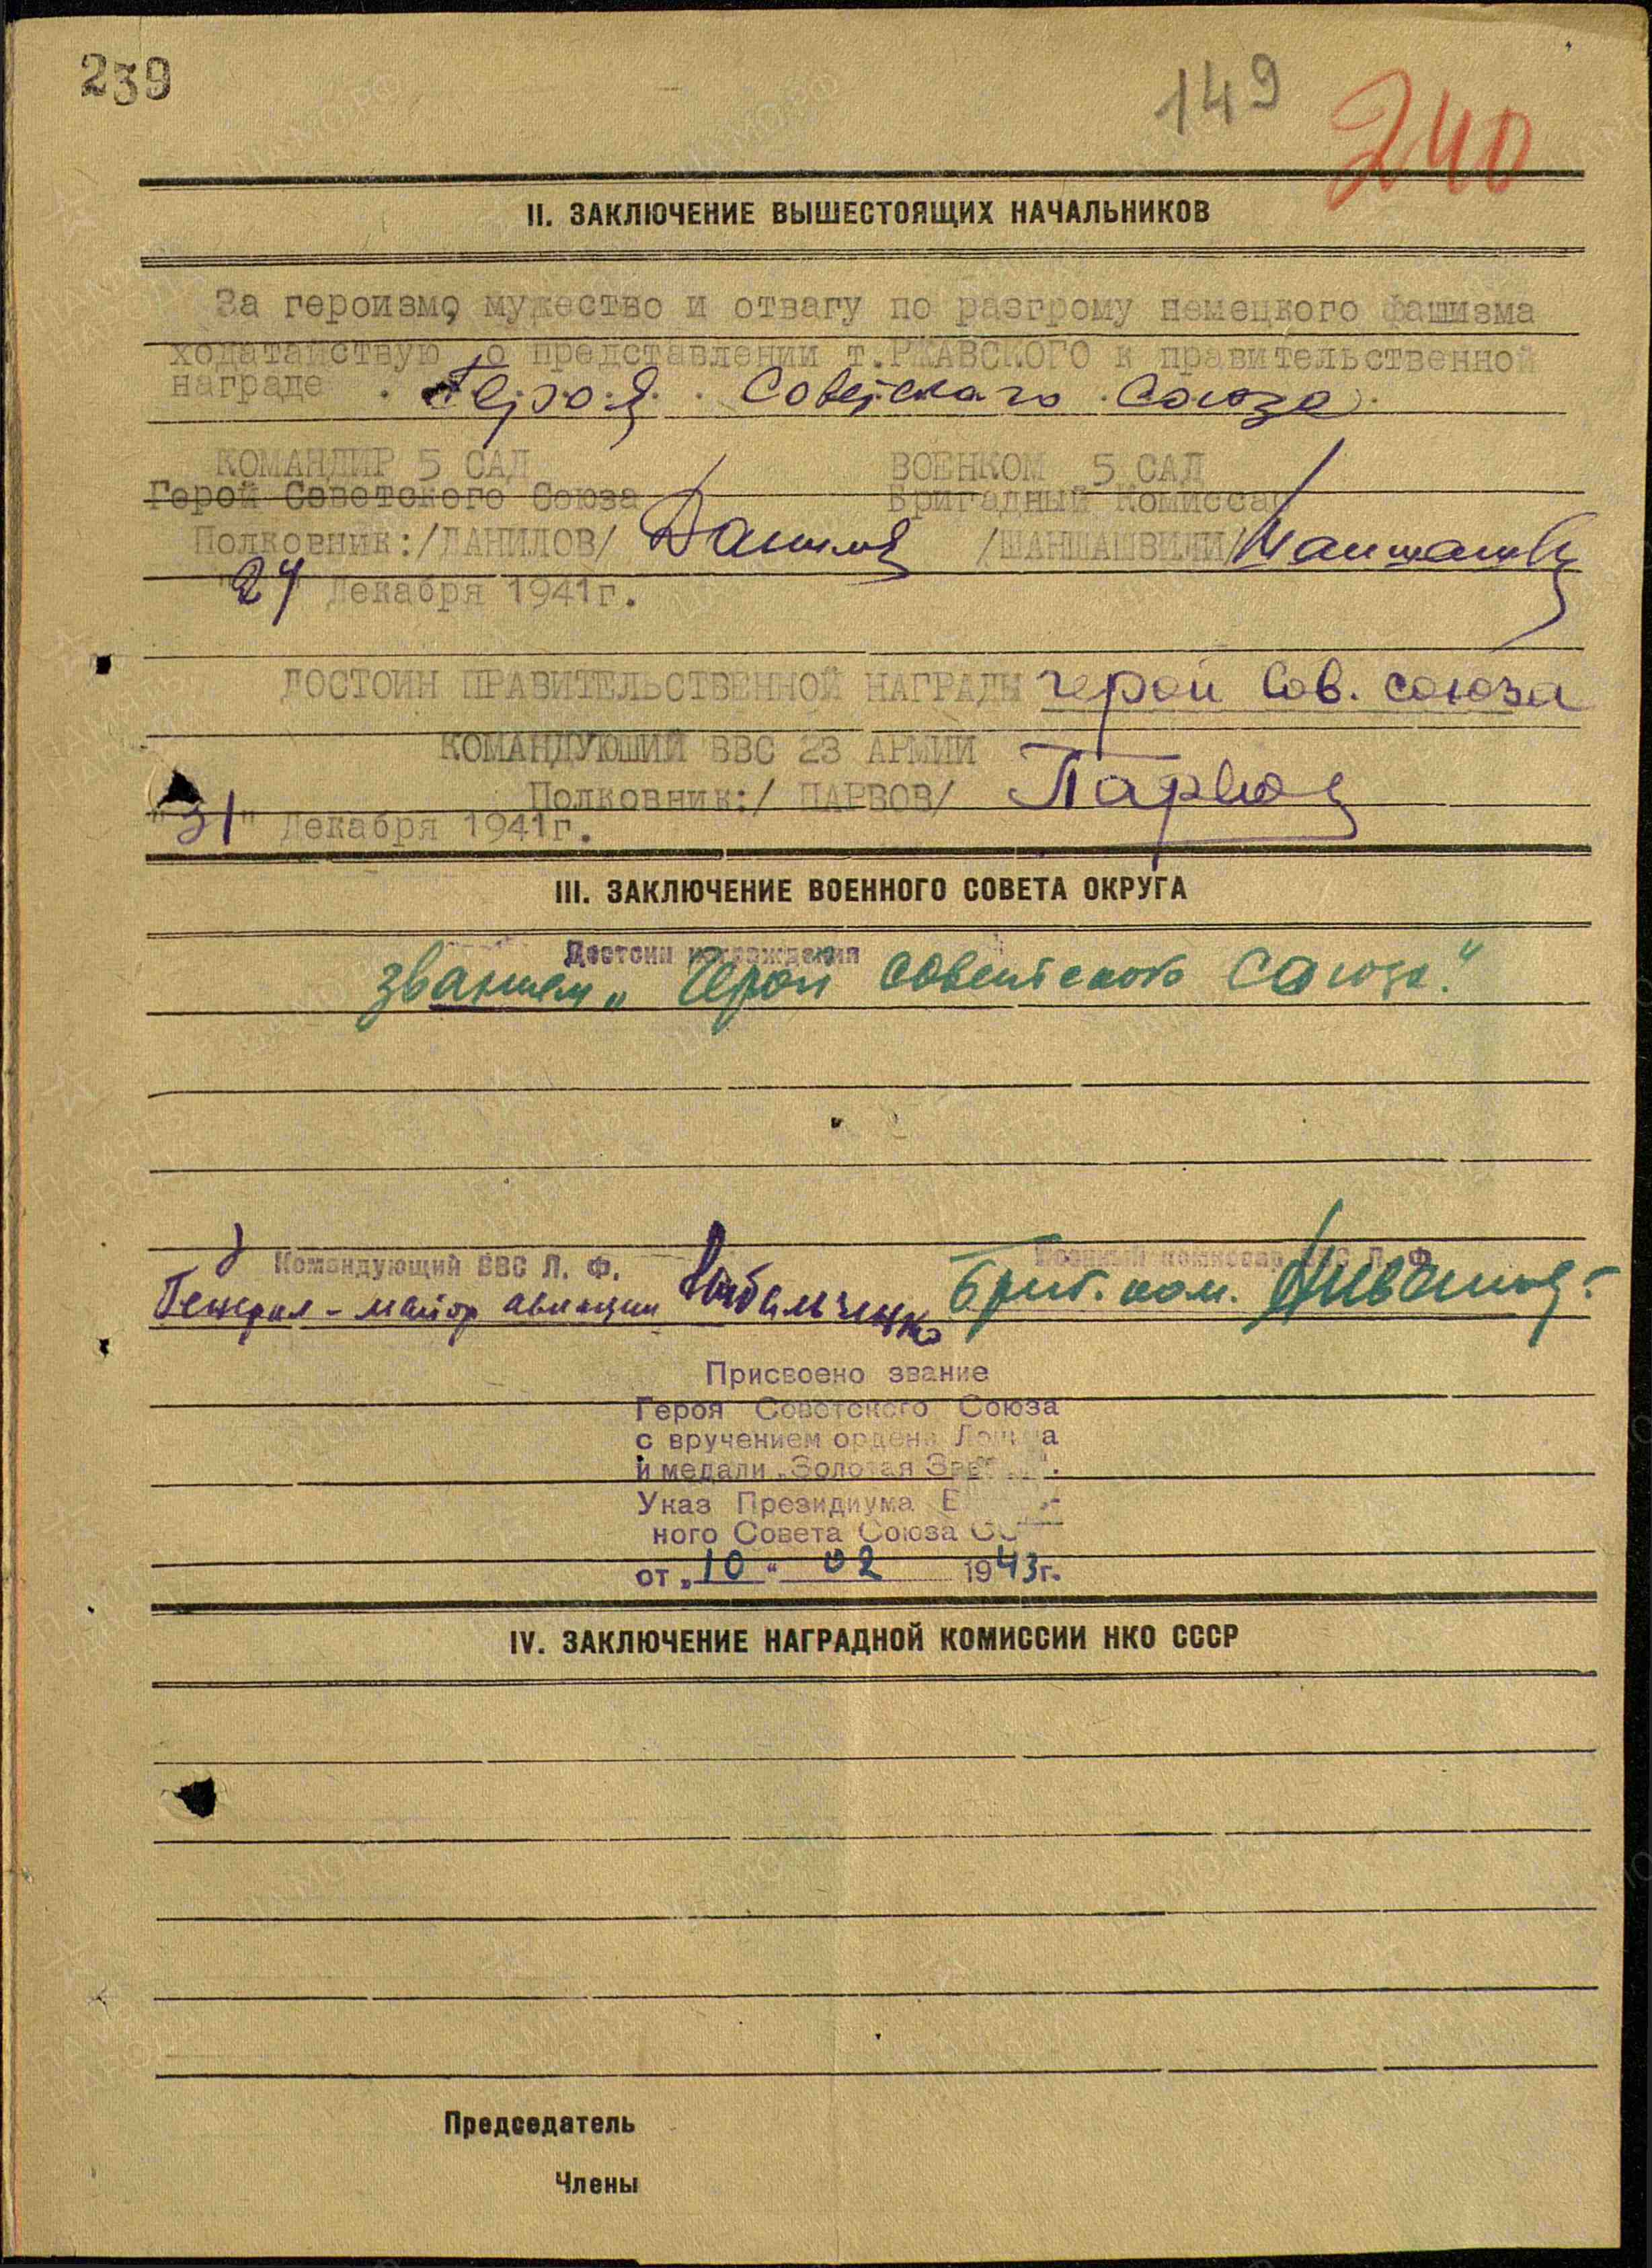 239
149
240
II. ЗАКЛЮЧЕНИЕ ВЫШЕСТОЯЩИХ НАЧАЛЬНИКОВ
За героизм, мужество и отвагу по разгрому немецкого фашизма
ходатайствую о представлении т.РЖАВСКОГО к правительственной
награде Героя Советского Союза.
КОМАНДИР 5 САД ВОЕНКОМ 5 САД
Герой Советского Союза Бригадный Комиссар
Полковник:/ДАНИЛОВ/ Данилов /ШАНШАШВИЛИ/ Шаншашв
"24" Декабря 1941г.
ДОСТОИН ПРАВИТЕЛЬСТВЕННОЙ НАГРАДЫ герой Сов. союза
КОМАНДУЮЩИЙ ВВС 23 АРМИИ
Полковник:/ ПАРВОВ/ Парвов
"31" Декабря 1941г.
III. ЗАКЛЮЧЕНИЕ ВОЕННОГО СОВЕТА ОКРУГА
Достоин награждения
званием „Герой Советского Союза."
Командующий ВВС Л. Ф. Военный комиссар ВВС Л. Ф.
Генерал-майор авиации Бриг. ком.
Присвоено звание
Героя Советского Союза
с вручением ордена Ленина
и медали „Золотая
Указ Президиума
ного Совета Союза
от „10" 02 1943г.
IV. ЗАКЛЮЧЕНИЕ НАГРАДНОЙ КОМИССИИ НКО СССР
Председатель
Члены